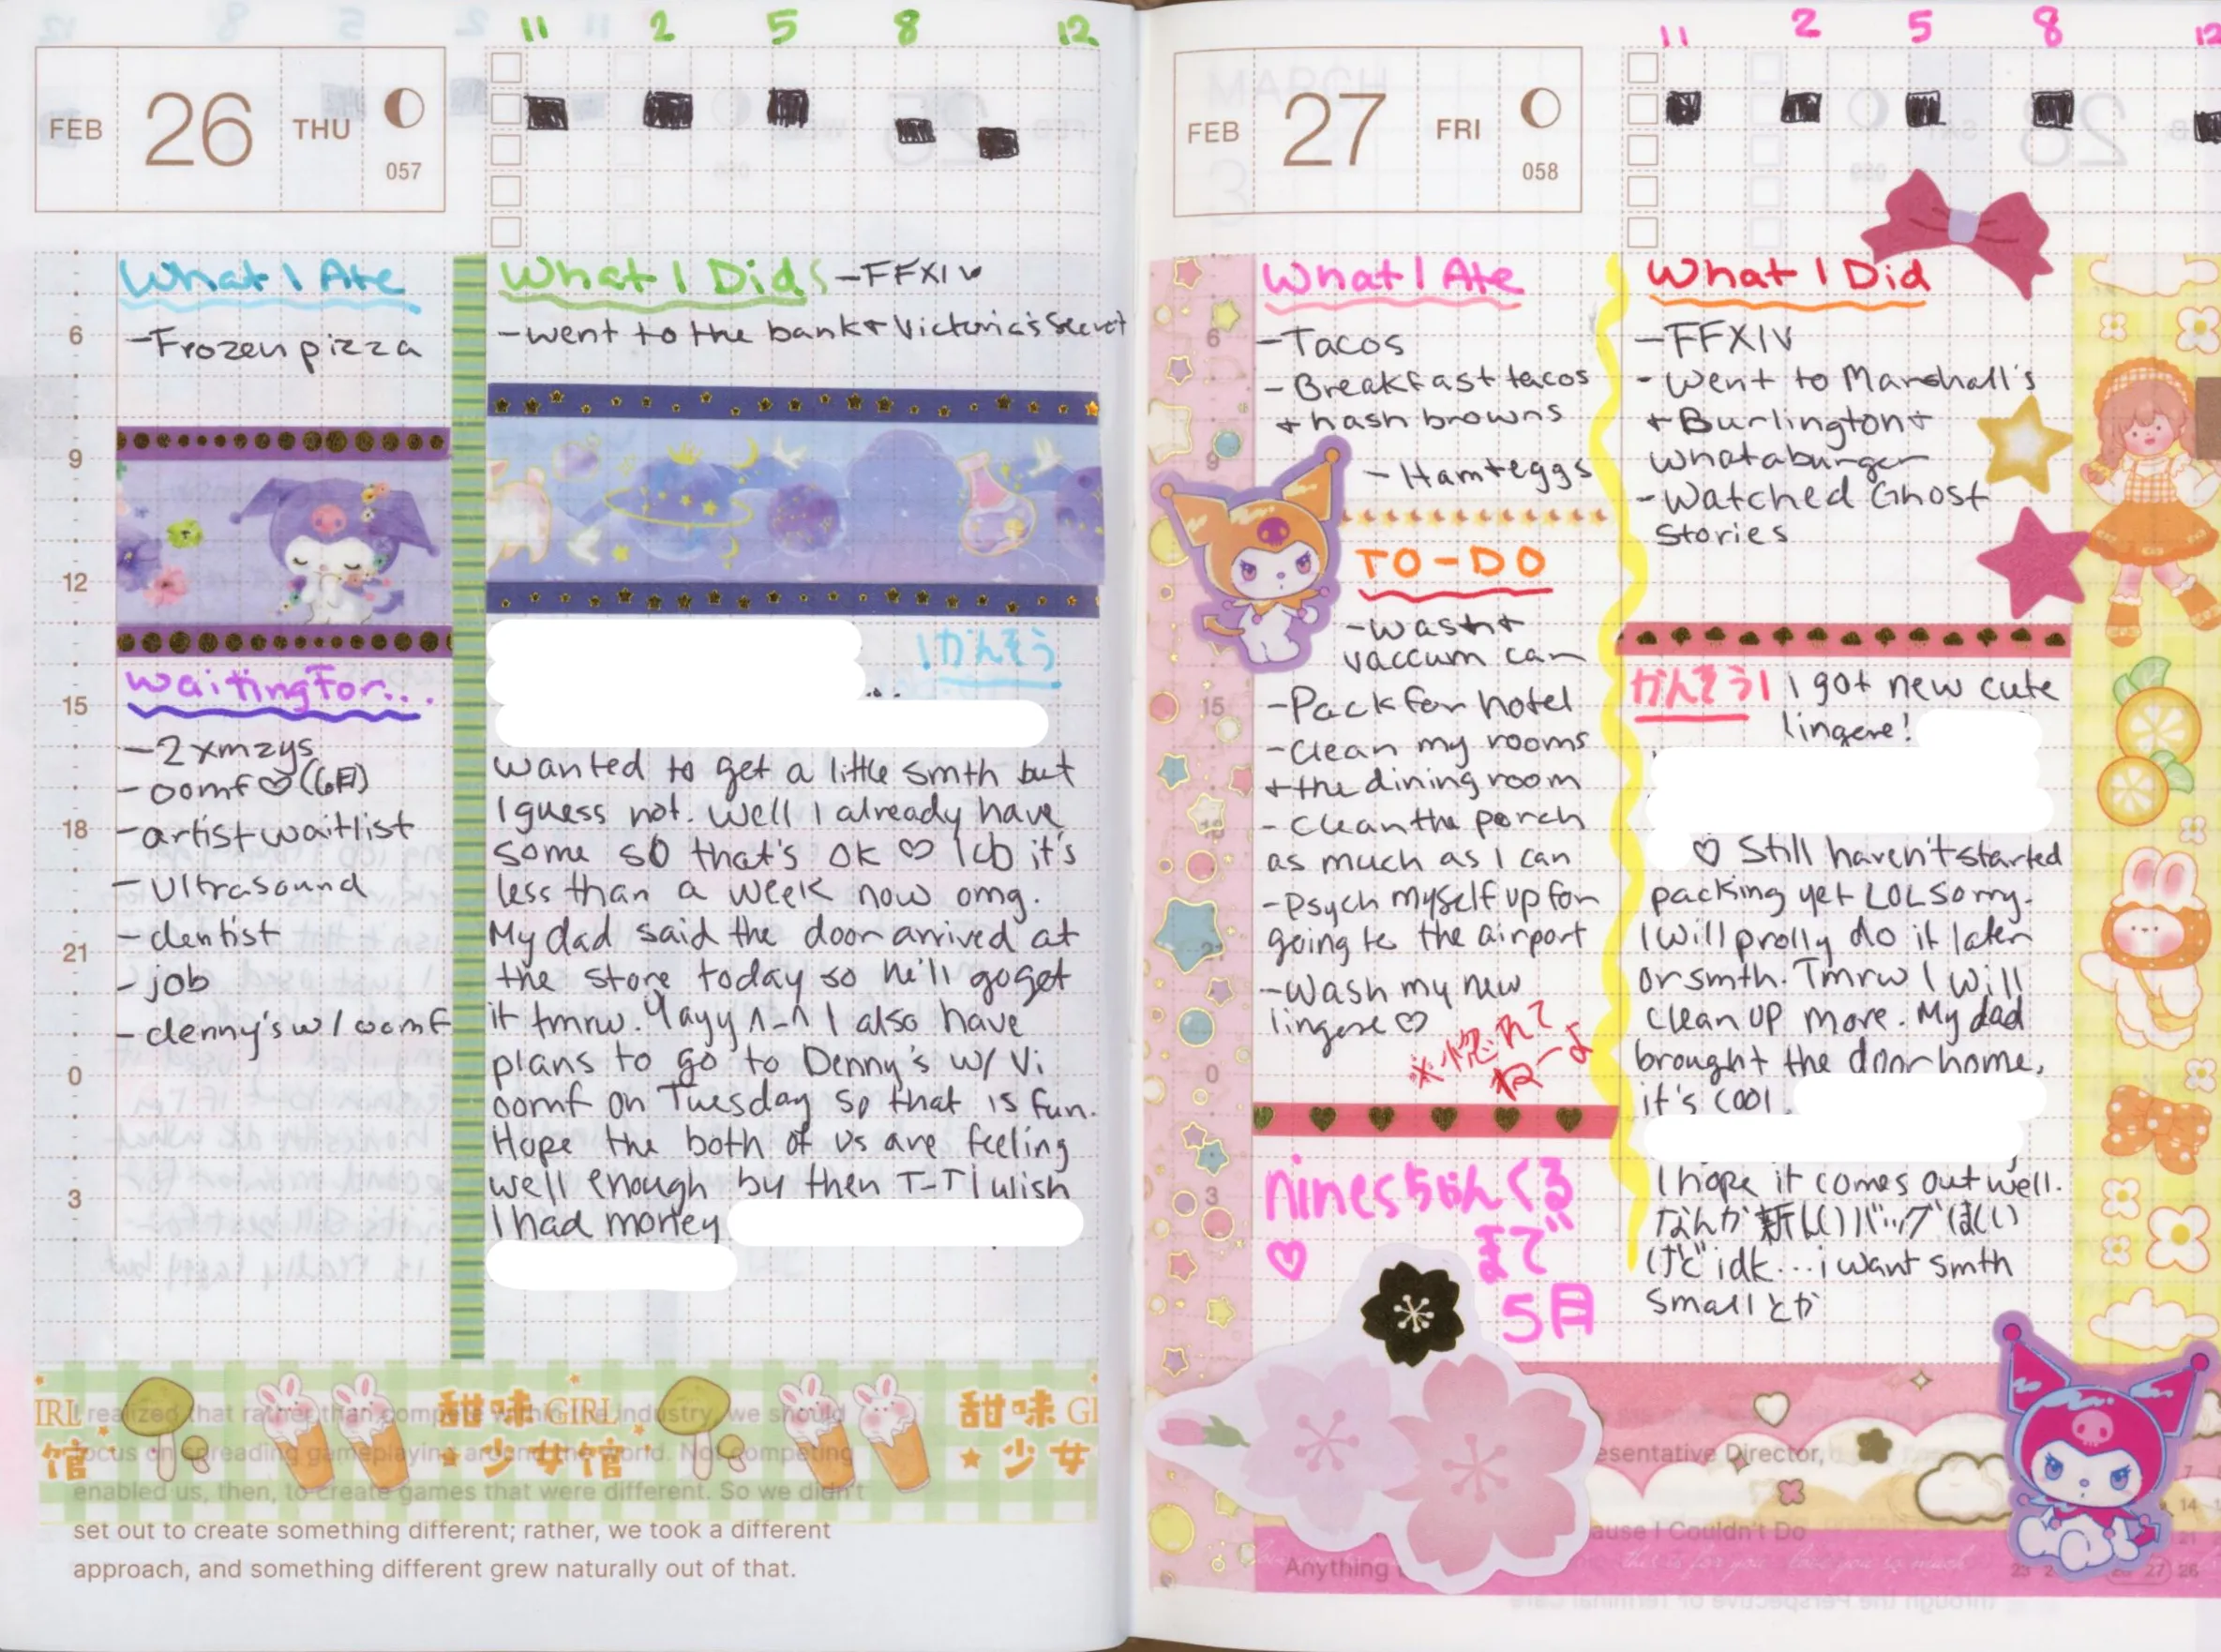 11 2 5 8 12
FEB 26 THU
057
What I Ate
-Frozen pizza
Waiting For...
-2 xmzys
-oomf♡(6月)
-artist waitlist
-Ultrasound
-dentist
-job
-denny's w/ oomf
What I Did -FFXIV
-went to the bank + Victoria's Secret
!かんそう
...
wanted to get a little smth but
I guess not. Well I already have
some so that's ok ♡ Icb it's
less than a week now omg.
My dad said the door arrived at
the store today so he'll go get
it tmrw. Yayy ^-^ I also have
plans to go to Denny's w/ Vi
oomf on Tuesday so that is fun.
Hope the both of us are feeling
well enough by then T-T I wish
I had money
6
9
12
15
18
21
0
3
IRL 甜味 GIRL 甜味 GI
馆 少女馆 少女
I realized that rather than compete within the industry, we should
focus on spreading gameplaying around the world. Not competing
enabled us, then, to create games that were different. So we didn't
set out to create something different; rather, we took a different
approach, and something different grew naturally out of that.
11 2 5 8 12
FEB 27 FRI
058
What I Ate
-Tacos
-Breakfast tacos
+ hash browns
-Ham+eggs
TO-DO
-wash +
vaccum car
-Pack for hotel
-Clean my rooms
+the dining room
-Clean the porch
as much as I can
-Psych myself up for
going to the airport
-Wash my new
lingere♡
※惚れて
ねーよ
ninesちゃんくる
♡ まで
5月
What I Did
-FFXIV
-Went to Marshall's
+Burlington+
Whataburger
-Watched Ghost
Stories
かんそう! I got new cute
lingere!
♡ Still haven't started
packing yet LOL sorry.
I will prolly do it later
or smth. Tmrw I will
clean up more. My dad
brought the door home,
it's cool.
I hope it comes out well.
なんか新しいバッグほしい
けど idk... i want smth
smallとか
6
9
12
15
0
3
esentative Director,
ause I Couldn't Do
Anything
this is for you love you so much
14
21
27 28